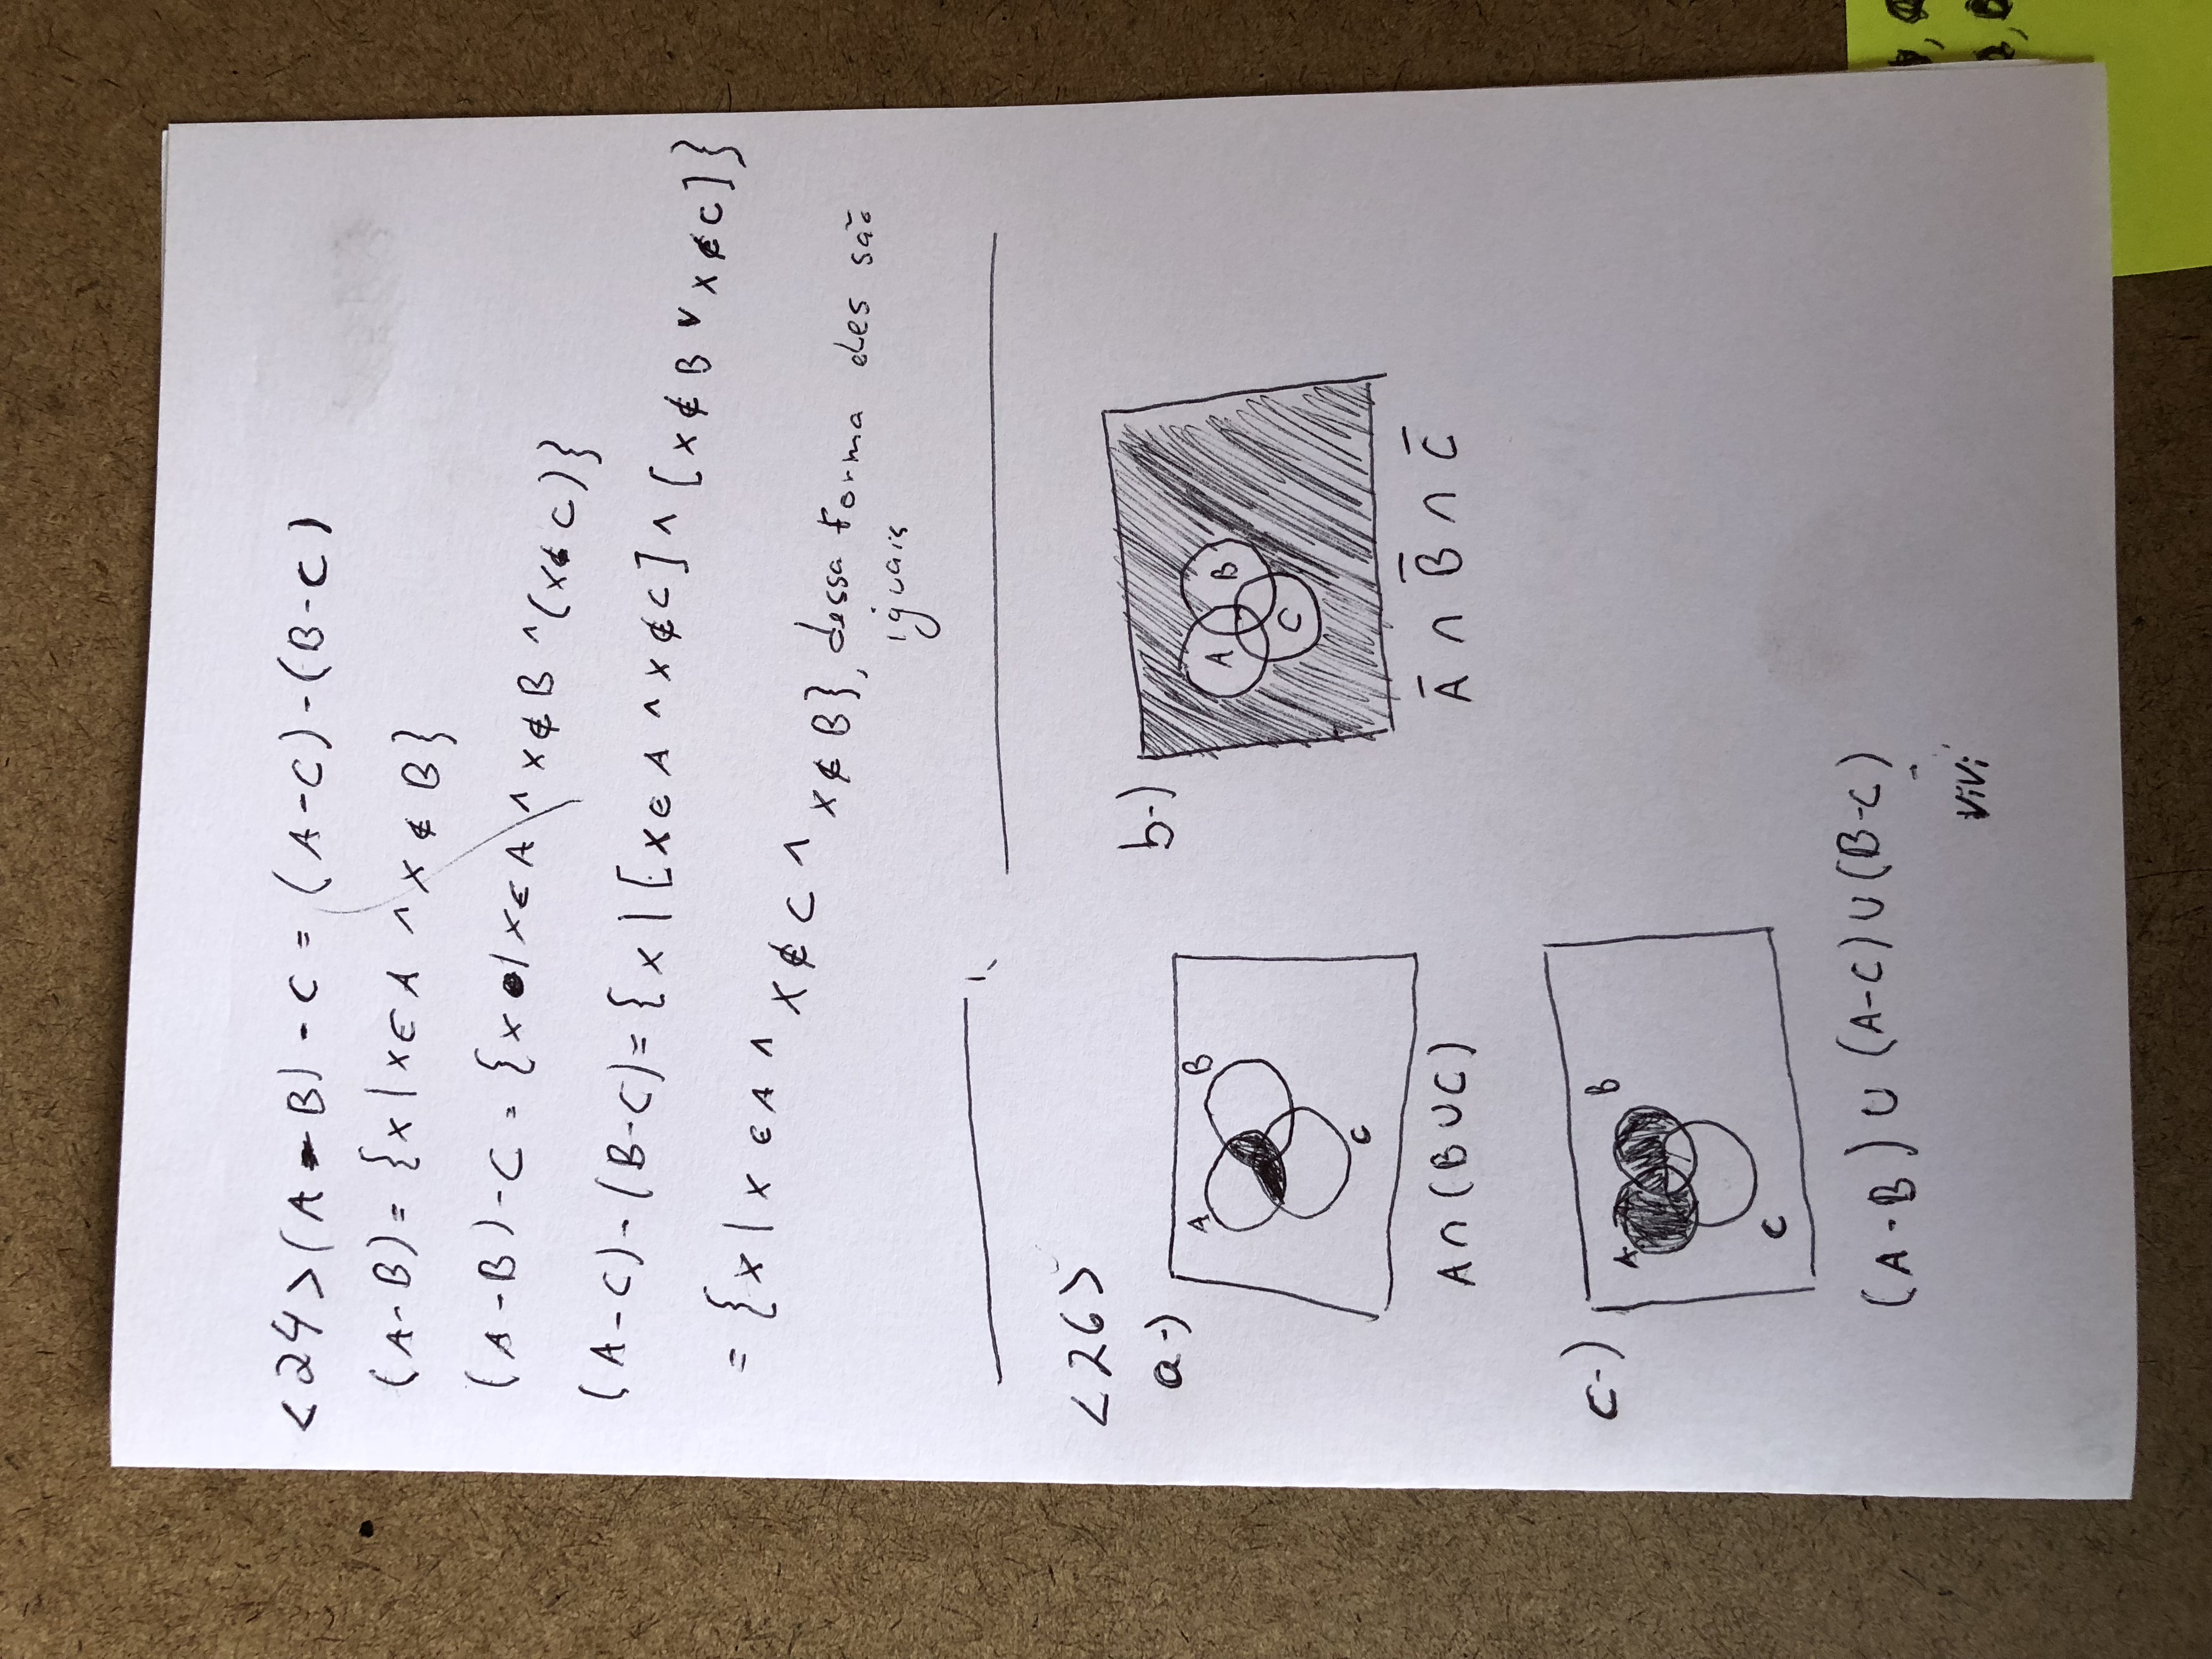 <24> (A - B) - C = (A - C) - (B - C)
(A - B) = {x | x ∈ A ∧ x ∉ B}
(A - B) - C = {x | x ∈ A ∧ x ∉ B ∧ (x ∉ C)}
(A - C) - (B - C) = {x | [x ∈ A ∧ x ∉ C] ∧ [x ∉ B ∨ x ∈ C]}
= {x | x ∈ A ∧ x ∉ C ∧ x ∉ B}, dessa forma eles são
iguais
<26>
a-)
A B
C
A ∩ (B ∪ C)
b-)
A B
C
A̅ ∩ B̅ ∩ C̅
c-)
A B
C
(A - B) ∪ (A - C) ∪ (B - C)
ViVi